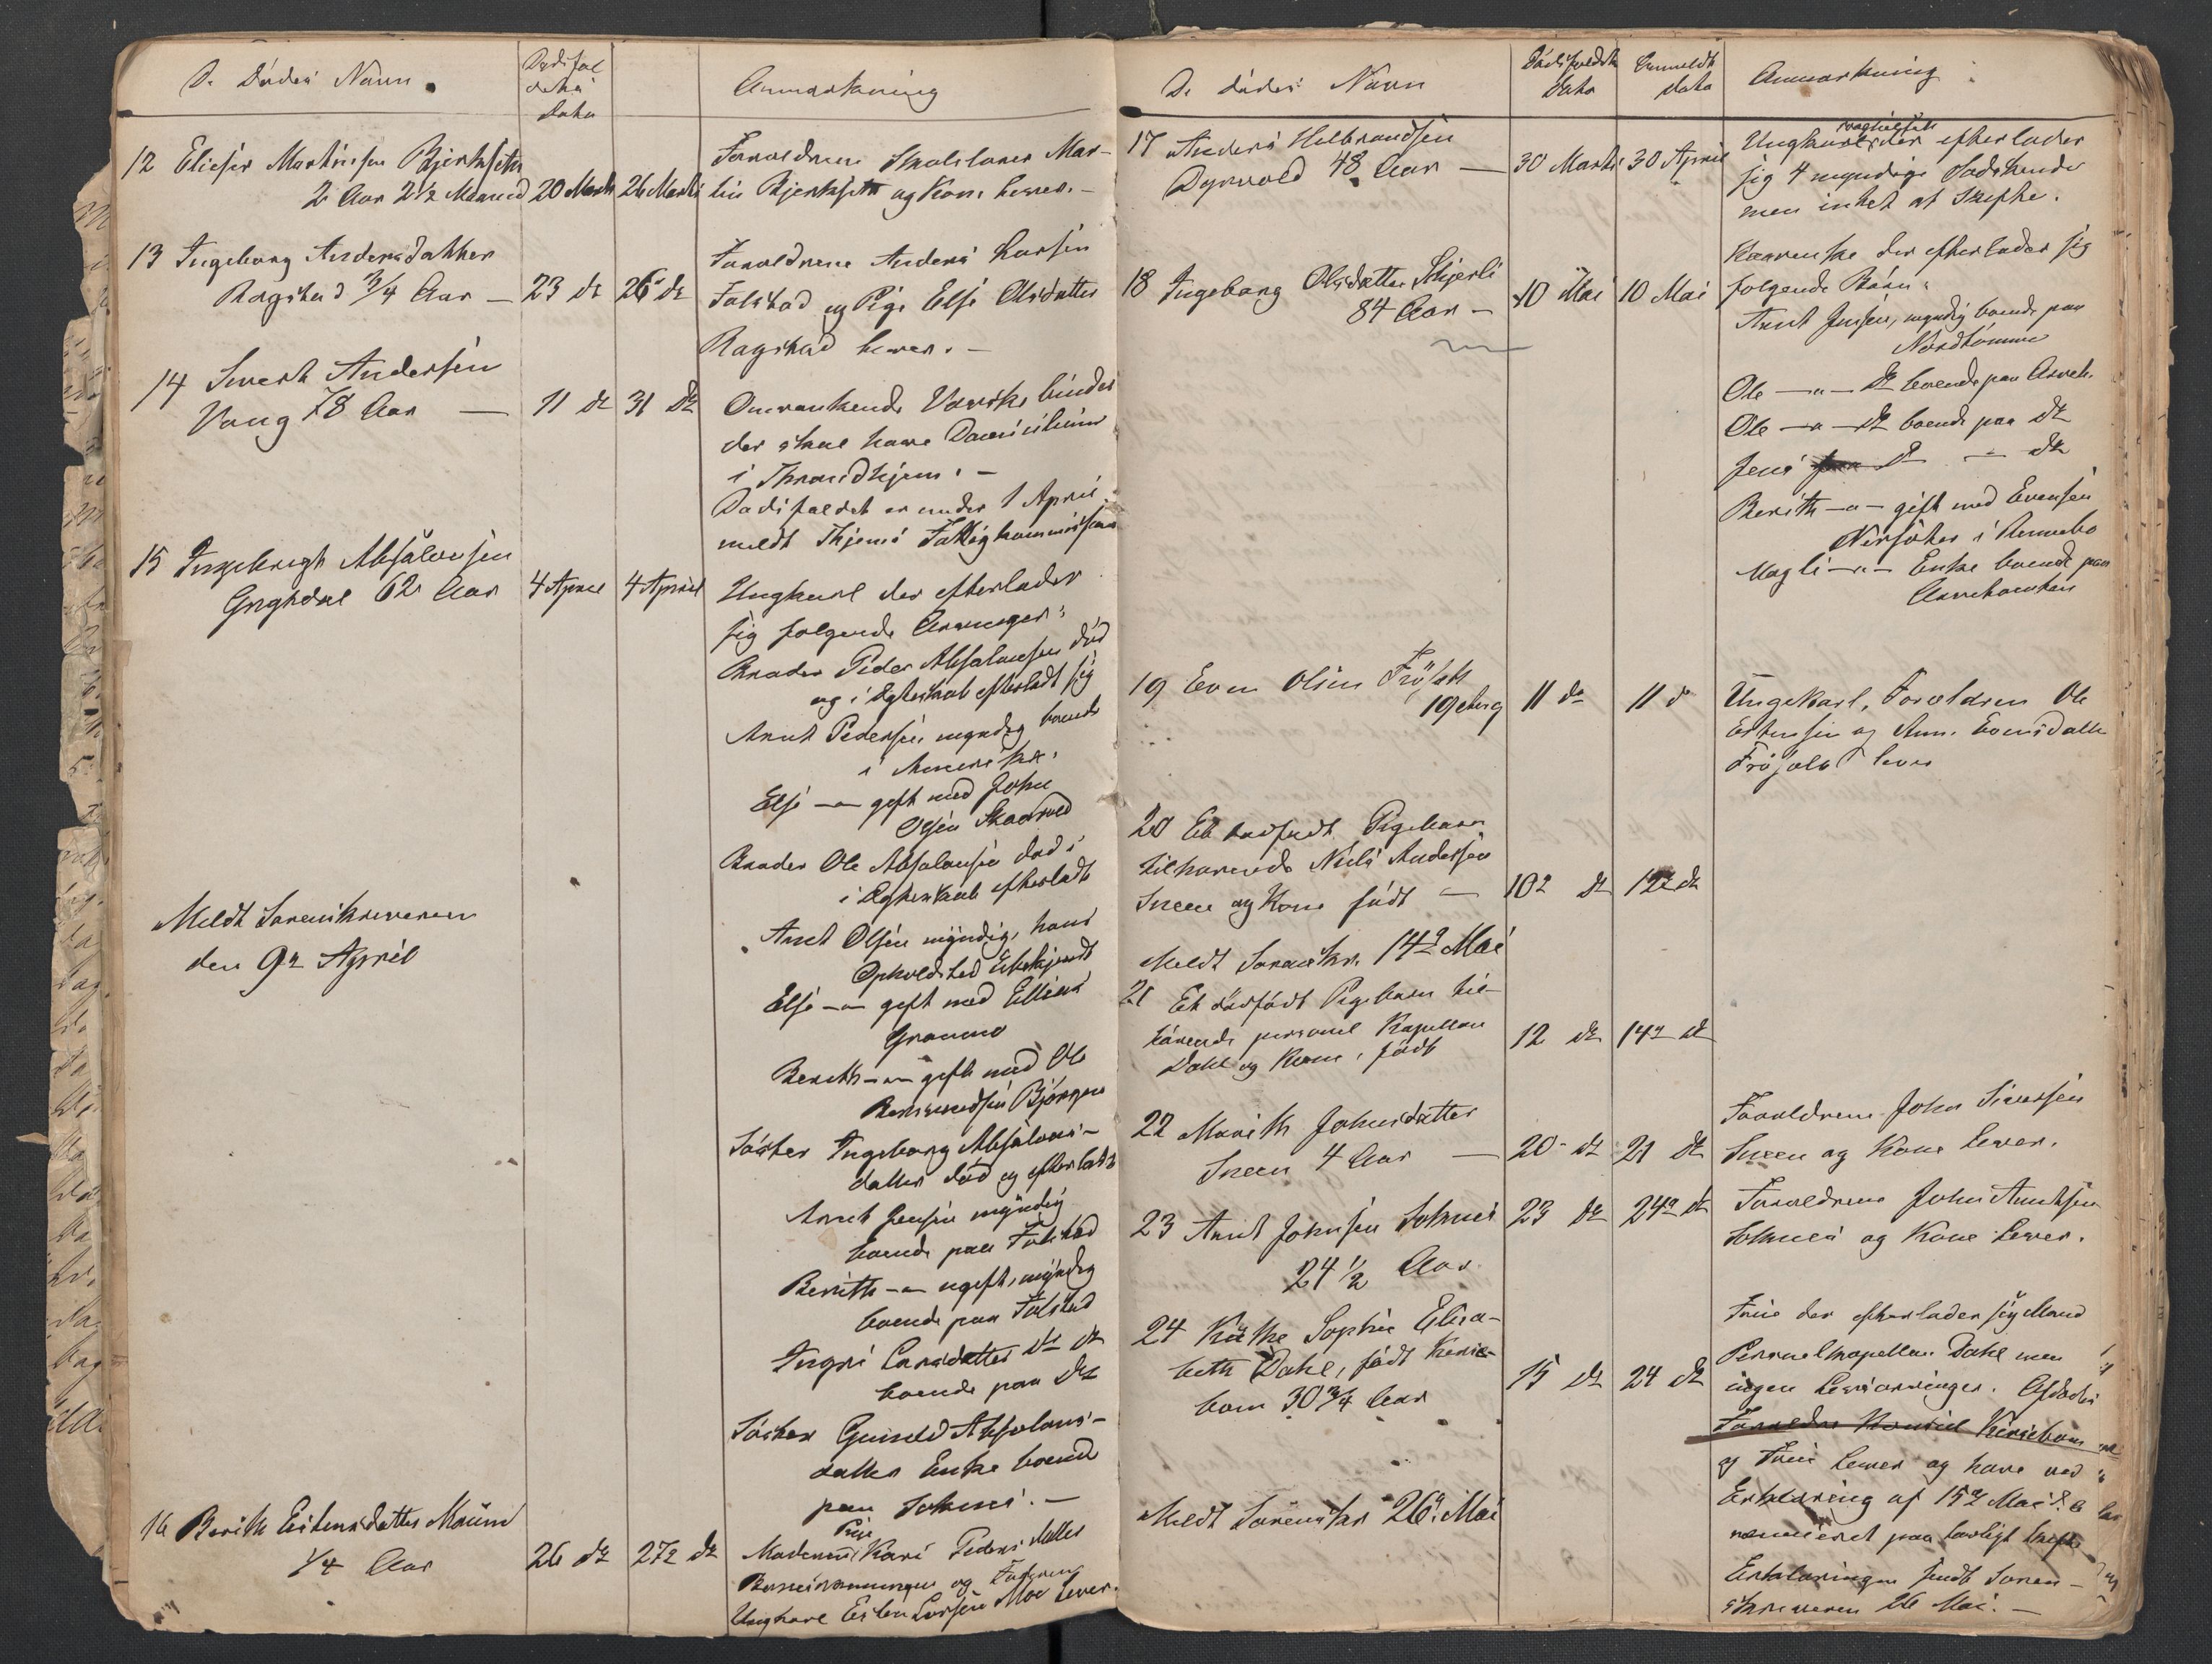 De Dødes Navn.
Dødsfaldets Dato
Anmærkning
12 Elieser Martinsen Bjerksetn
2 Aar 2 1/2 Maaned 20 Marts 26 Marts
Forældrene Skolelærer Mar-
tin Bjerksetn og Kone lever. -
13 Ingeborg Andersdatter
Ragstad 3/4 Aar - 23 de 26 de
Forældrene Anders Larsen
Folstad og Pige Elsi Olsdatter
Ragstad lever. -
14 Sivert Andersen
Vang 78 Aar - 11 de 31 de
Omvankende
der skal have Domicilium
i Throndhjem. -
Dødsfaldet er under 1 April
meldt Thjems Fattigkommission
15 Ingebrigt Absalonsen
62 Aar 4 April 4 April
Ungkarl der efterlader
sig følgende Arvinger:
Broder Peder Absalonsen død
og i Egteskab efterladt sig
Arnt Pedersen myndig boende
i Amerika.
Elsi -"- gift med John
Olsen
Broder Ole Absalonsen død i
i Egteskab efterladt
Arnt Olsen myndig, hans
Opholdsted Ubekjendt
Elsi -"- gift med
Gramo
Berith -"- gift med Ole
Bjørgen
Søster Ingeborg Absalons-
datter død og efterladt
Arnt Jensen myndig
boende paa Folstad
Berith -"- ugift, myndig
boende paa Folstad
Ingri Larsdatter de de
boende paa de
Søster Gunild Absolons-
datter Enke boende
paa Solnæs. -
Meldt Sorenskriveren
den 9de April
16 Berith Estensdatter
1/4 Aar 26 de 27de de
Pige
Moderen Kari Pedersdatter
og Faderen
Ungkarl Esten Larsen Moe lever.
De dødes Navn
Dødsfaldets Dato
Anmeldt dato
Anmærkning
17 Anders Hilbrandsen
Dyrvold 48 Aar - 30 Marts 30 April
Ungkarl der efterlader
sig 4 myndige Sødskende
men intet at Skifte.
18 Ingeborg Olsdatter
84 Aar - 10 Mai 10 Mai
der efterlader sig
følgende Børn:
Arnt Jensen, myndig boende paa
Nordtømme
Ole -"- de boende paa
Ole -"- de boende paa de
Jens de - de
Berith -"- gift med Evensen
i Rennebo
Magli -"- Enke boende paa
19 Even Olsen
11 de 11 d
Ungekarl, Foreldren Ole
Estensen og Evensdatter
lever
20 Et dødfødt Pigebarn
tilhørende Niels Andersen
Sneen og Kone født - 10de de 12de de
Meldt Sorenskr. 14de Mai
21 Et dødfødt Pigebarn til-
hørende personel Kapellan
Dahl og Kone, født 12 de 14de de
22 Marith Johnsdatter
Sneen 4 Aar - 20 de 21 de
Forældrene John Sivertsen
Sneen og Kone lever.
23 Arnt Johnsen Solnæs 23 de 24de de
24 1/2 Aar
Forældrene John Arntsen
Solnæs og Kone lever.
24 Käthe Sophie Elisa-
beth Dahl, født
30 3/4 Aar 15 de 24 de
Frue der efterlader sig Mand
Personelkapellan Dahl men
ingen Livsarvinger. Afdødes
Forældre
og Frue lever og have ved
Erklæring af 15de Mai
paa lovligt Skifte
Erklæringen sendt Soren-
skriveren 26 Mai. -
Meldt Sorenskr 26de Mai